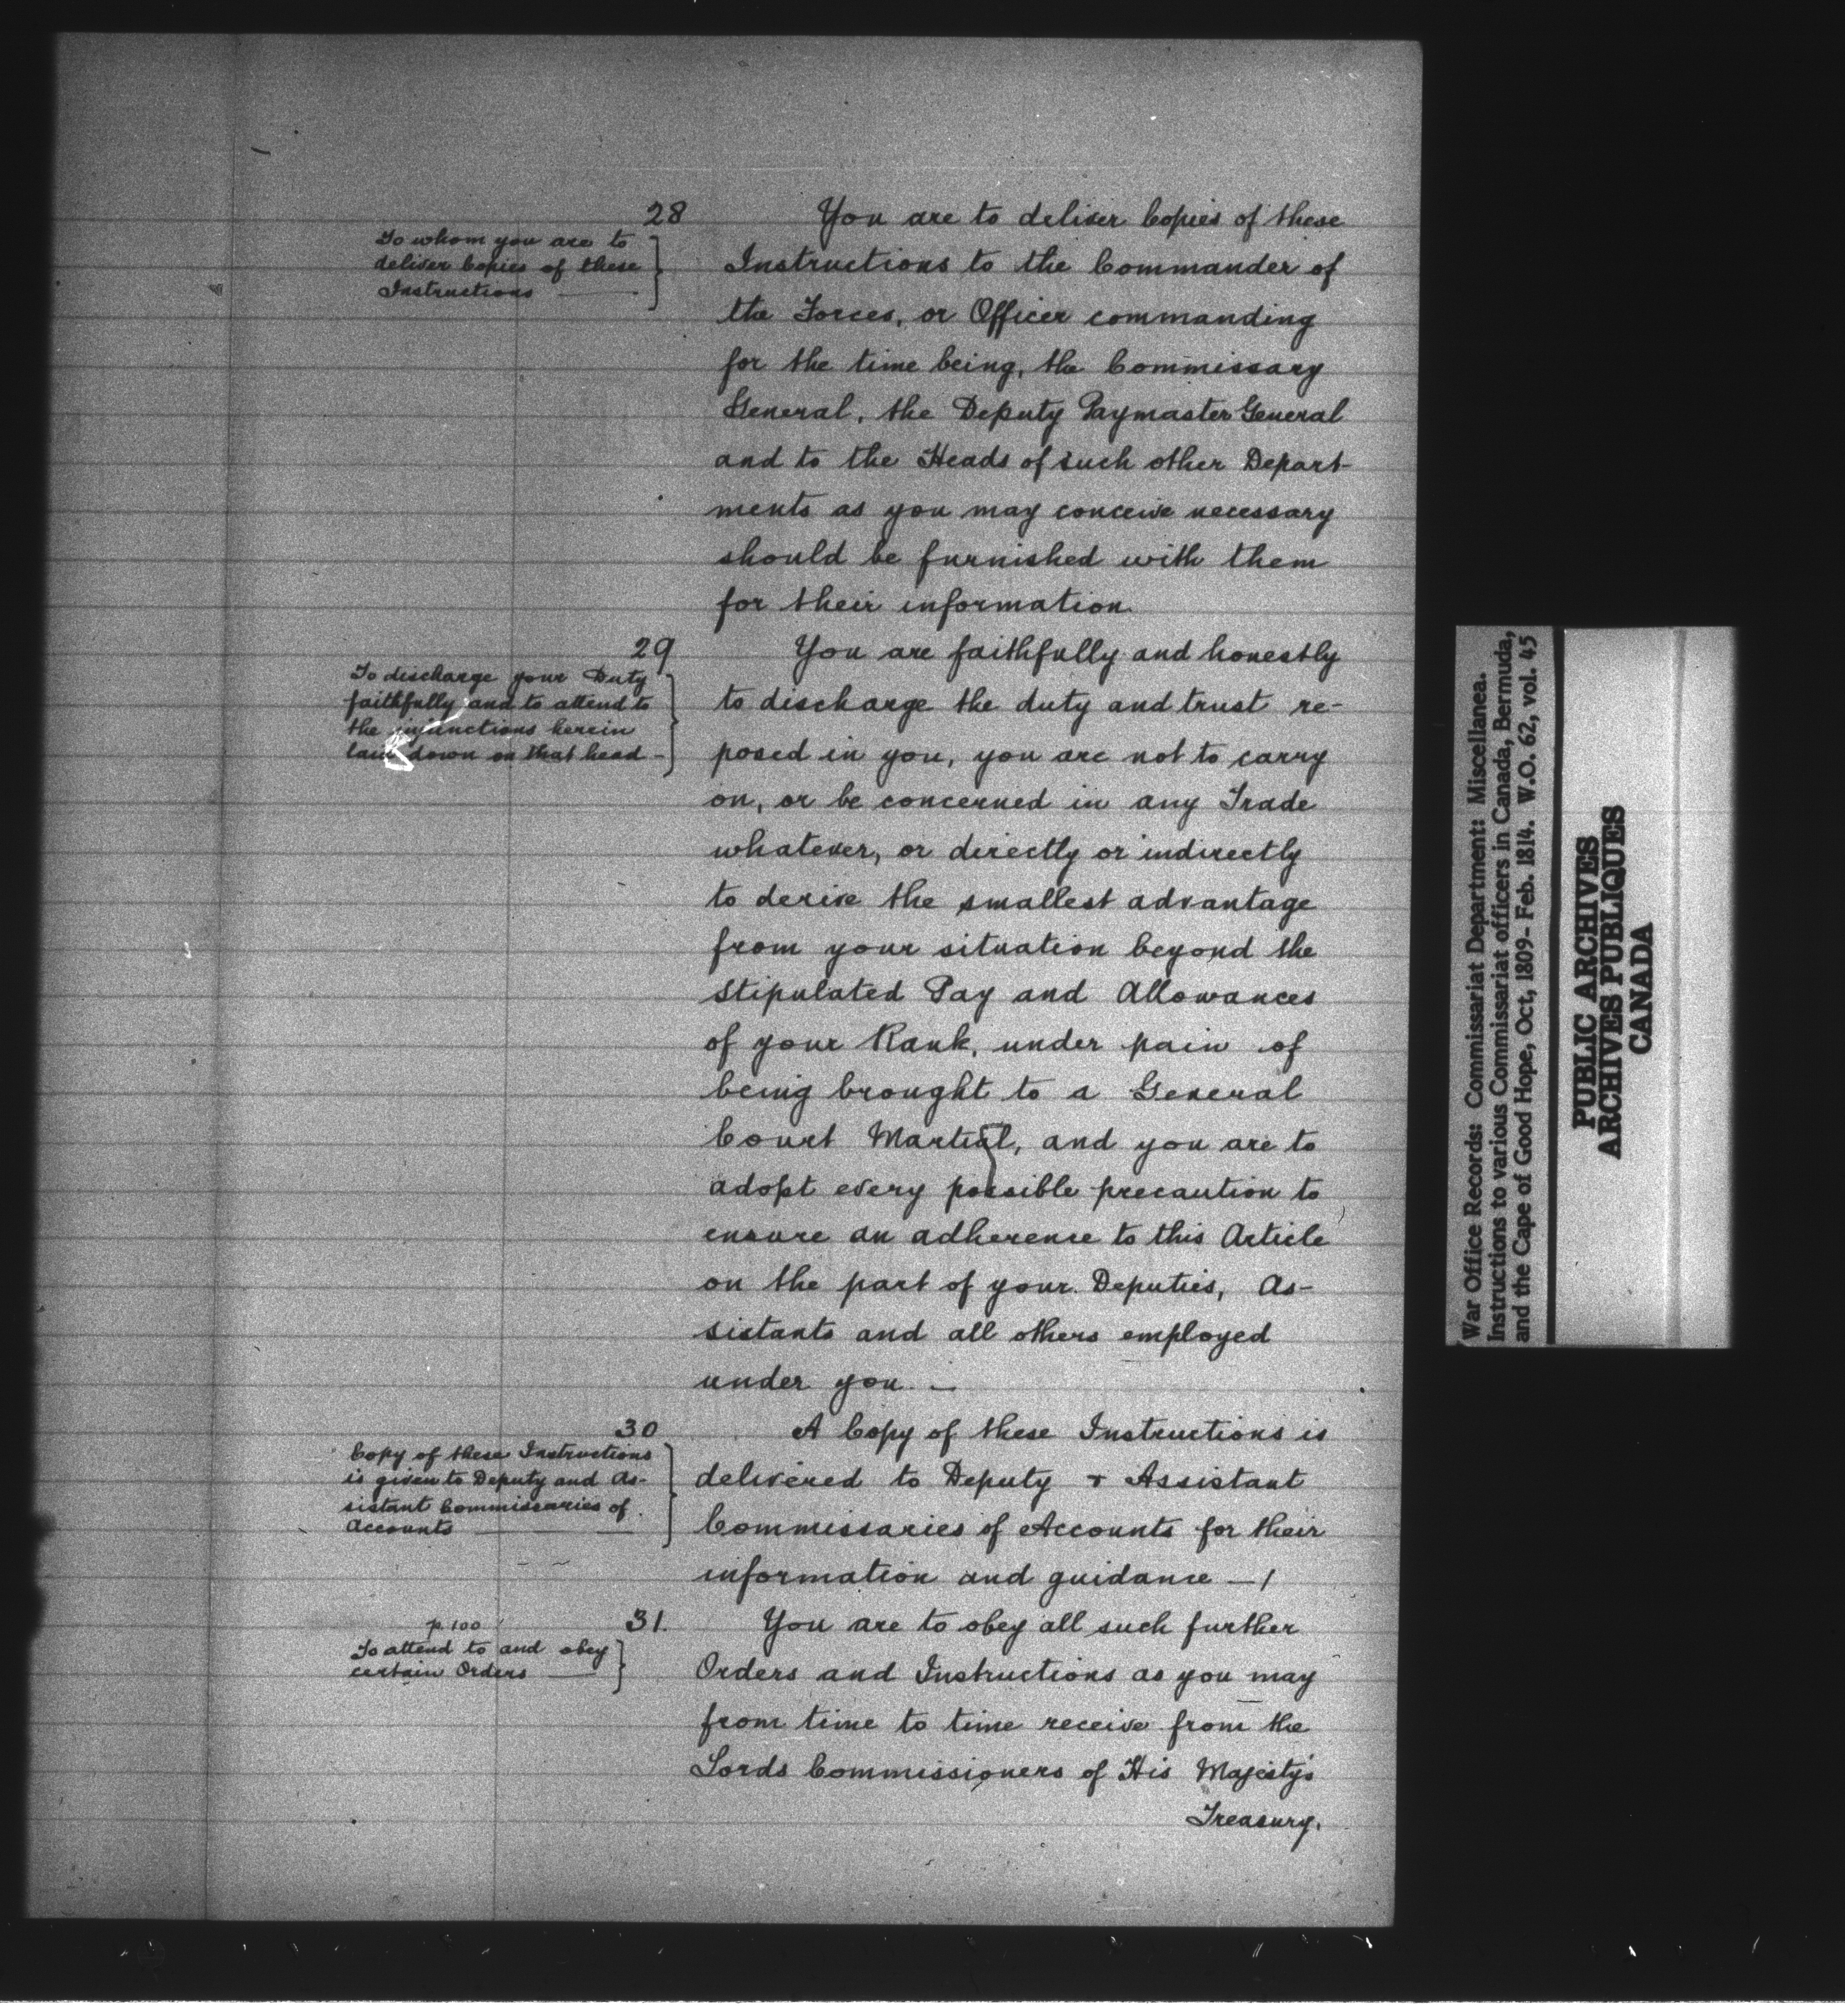 28
To whom you are to
deliver Copies of these
Instructions
You are to deliver Copies of these
Instructions to the Commander of
the Forces, or Officer commanding
for the time being, the Commissary
General, the Deputy Paymaster General
and to the Heads of such other Depart-
ments as you may conceive necessary
should be furnished with them
for their information
29
To discharge your Duty
faithfully and to attend to
the injunctions herein
laid down on that head -
You are faithfully and honestly
to discharge the duty and trust re-
posed in you, you are not to carry
on, or be concerned in any Trade
whatever, or directly or indirectly
to derive the smallest advantage
from your situation beyond the
Stipulated Pay and Allowances
of your Rank, under pain of
being brought to a General
Court Martial, and you are to
adopt every possible precaution to
ensure an adherence to this Article
on the part of your Deputies, As-
sistants and all others employed
under you. -
30
Copy of these Instructions
is given to Deputy and As-
sistant Commissaries of
Accounts
A Copy of these Instructions is
delivered to Deputy & Assistant
Commissaries of Accounts for their
information and guidance - /
p. 100
31.
To attend to and obey
certain Orders
You are to obey all such further
Orders and Instructions as you may
from time to time receive from the
Lords Commissioners of His Majesty's
Treasury.
War Office Records: Commissariat Department: Miscellanea.
Instructions to various Commissariat officers in Canada, Bermuda,
and the Cape of Good Hope, Oct, 1809- Feb. 1814. W.O. 62, vol. 45
PUBLIC ARCHIVES
ARCHIVES PUBLIQUES
CANADA